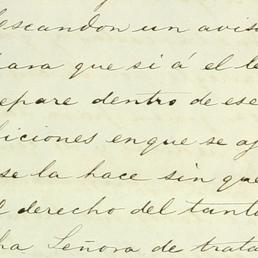 Escandon un aviso
para que si á el le
separe dentro de ese
diciones en que se aj
se la hace sin que
el derecho del tanto
cha Señora de trata